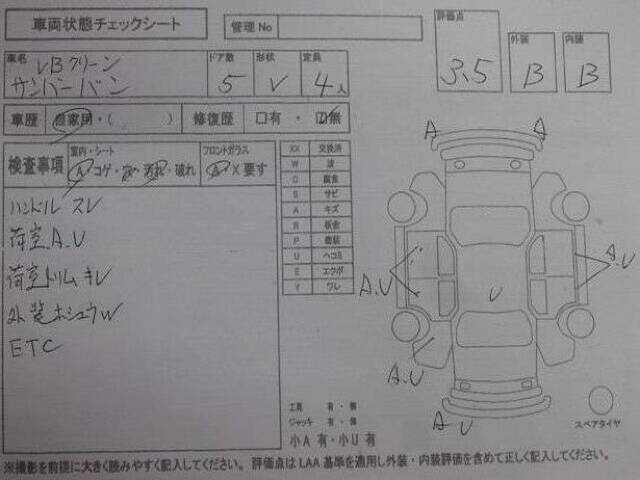 車両状態チェックシート
管理No
評価点
3.5
外装
B
内装
B
車名
VBクリーン
サンバーバン
ドア数
5
形状
V
定員
4人
車歴 自家用・( ) 修復歴 □有・□無
検査事項
室内・シート
A コゲ・穴・汚れ・破れ
フロントガラス
A X要す
ハンドル スレ
荷室 A.U
荷室トリム キレ
外装ホシュウW
ETC
XX 交換済
W 波
C 腐食
S サビ
A キズ
P 塗装
U ヘコミ
E エクボ
Y ワレ
A
A
A.U
A.U
U
A.U
A.U
工具 有・無
ジャッキ 有・無
小A 有・小U 有
スペアタイヤ
※撮影を前提に大きく読みやすく記入してください。評価点はLAA基準を適用し外装・内装評価を含めて正しく記入してください。